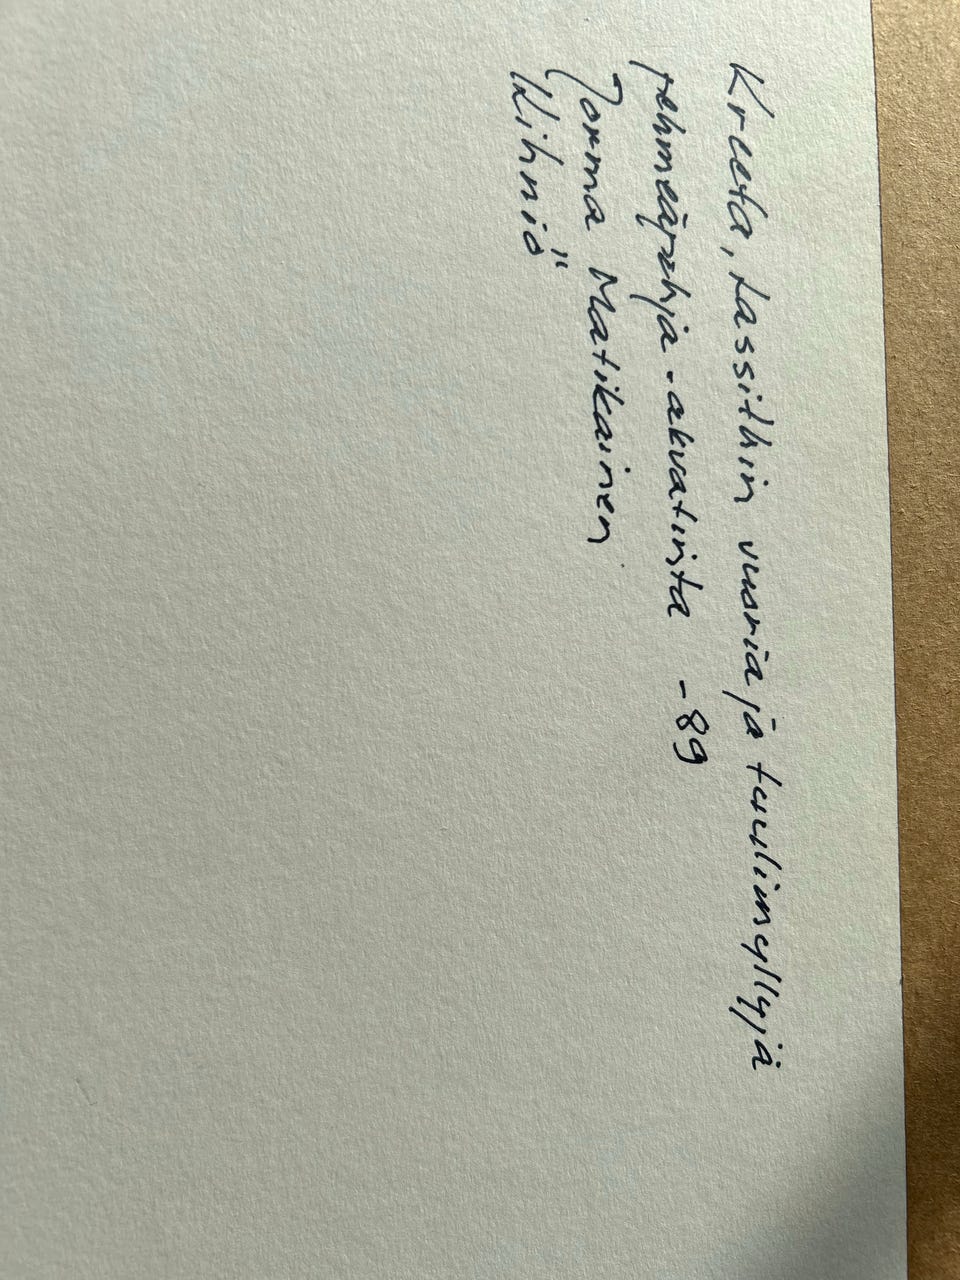 Kreeta, Lassithin vuoria ja tuulimyllyjä
pehmeäpohja-akvatinta -89
Jorma Matikainen
Kihniö